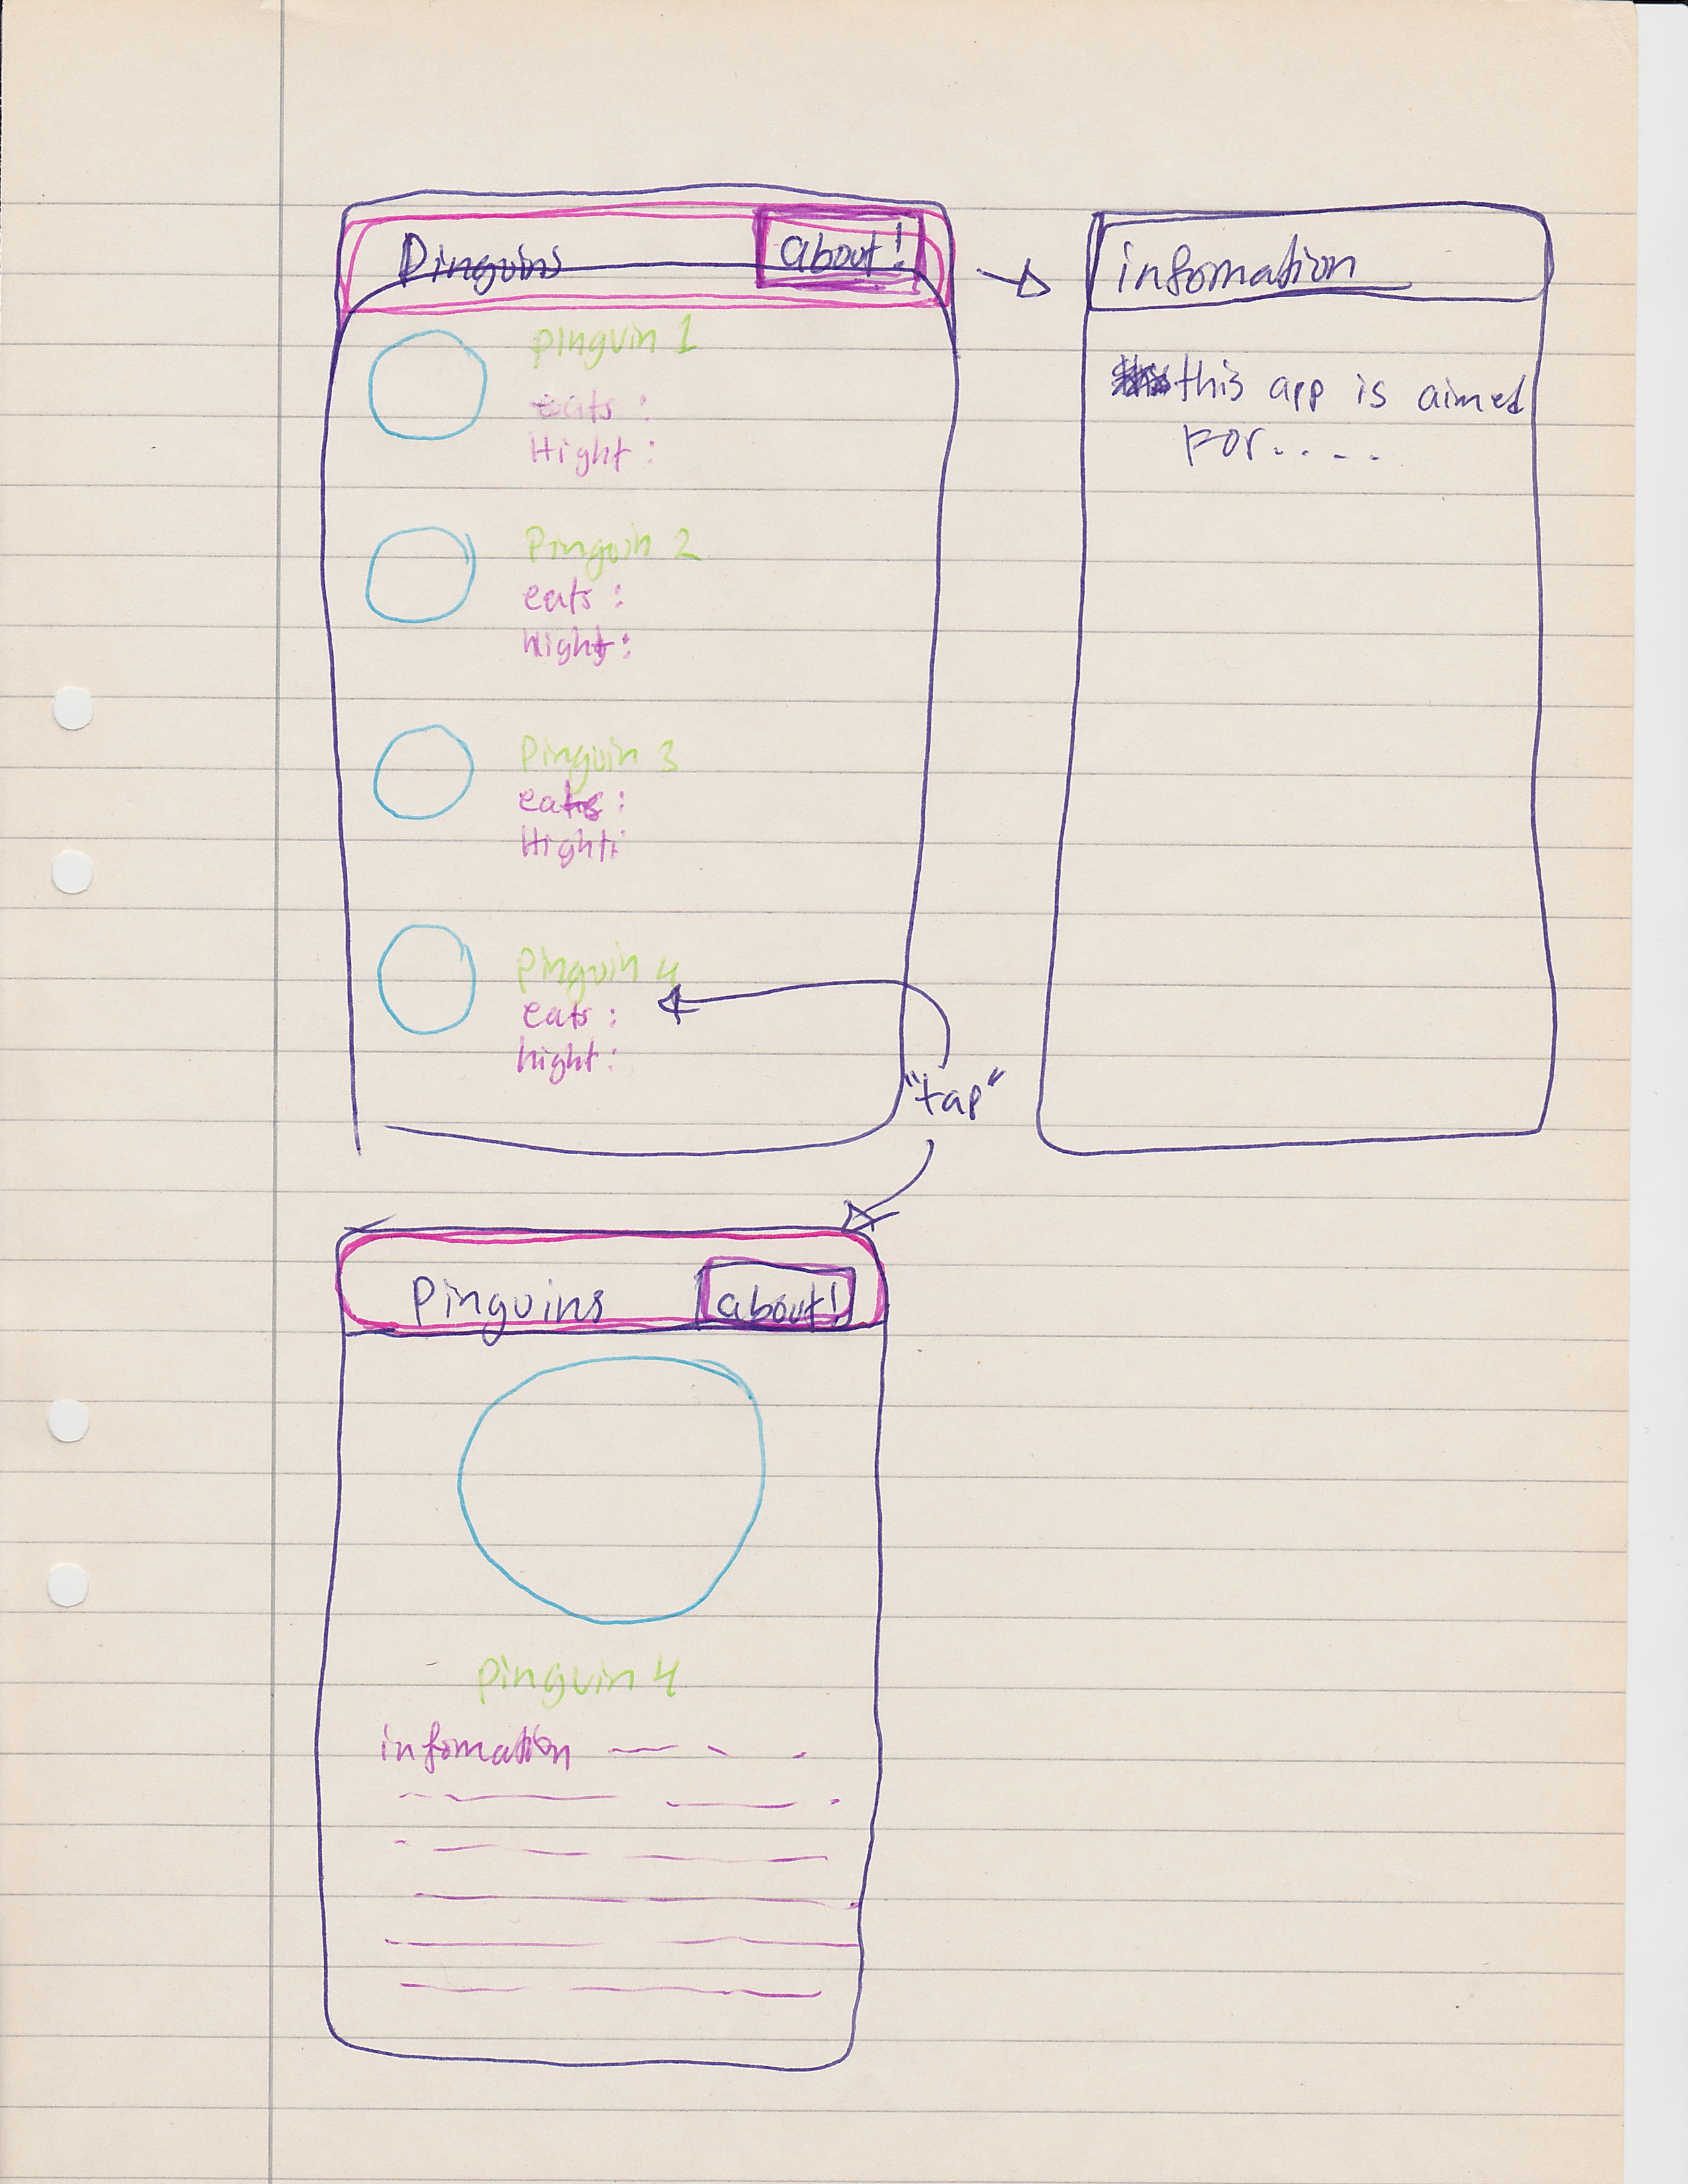 Pinguins about!
pinguin 1
eats :
Hight :
Pinguin 2
eats :
hight :
Pinguin 3
eats :
Hight:
pinguin 4
eats :
hight :
"tap"
infomation
this app is aimed
For.....
Pinguins about!
pinguin 4
infomation